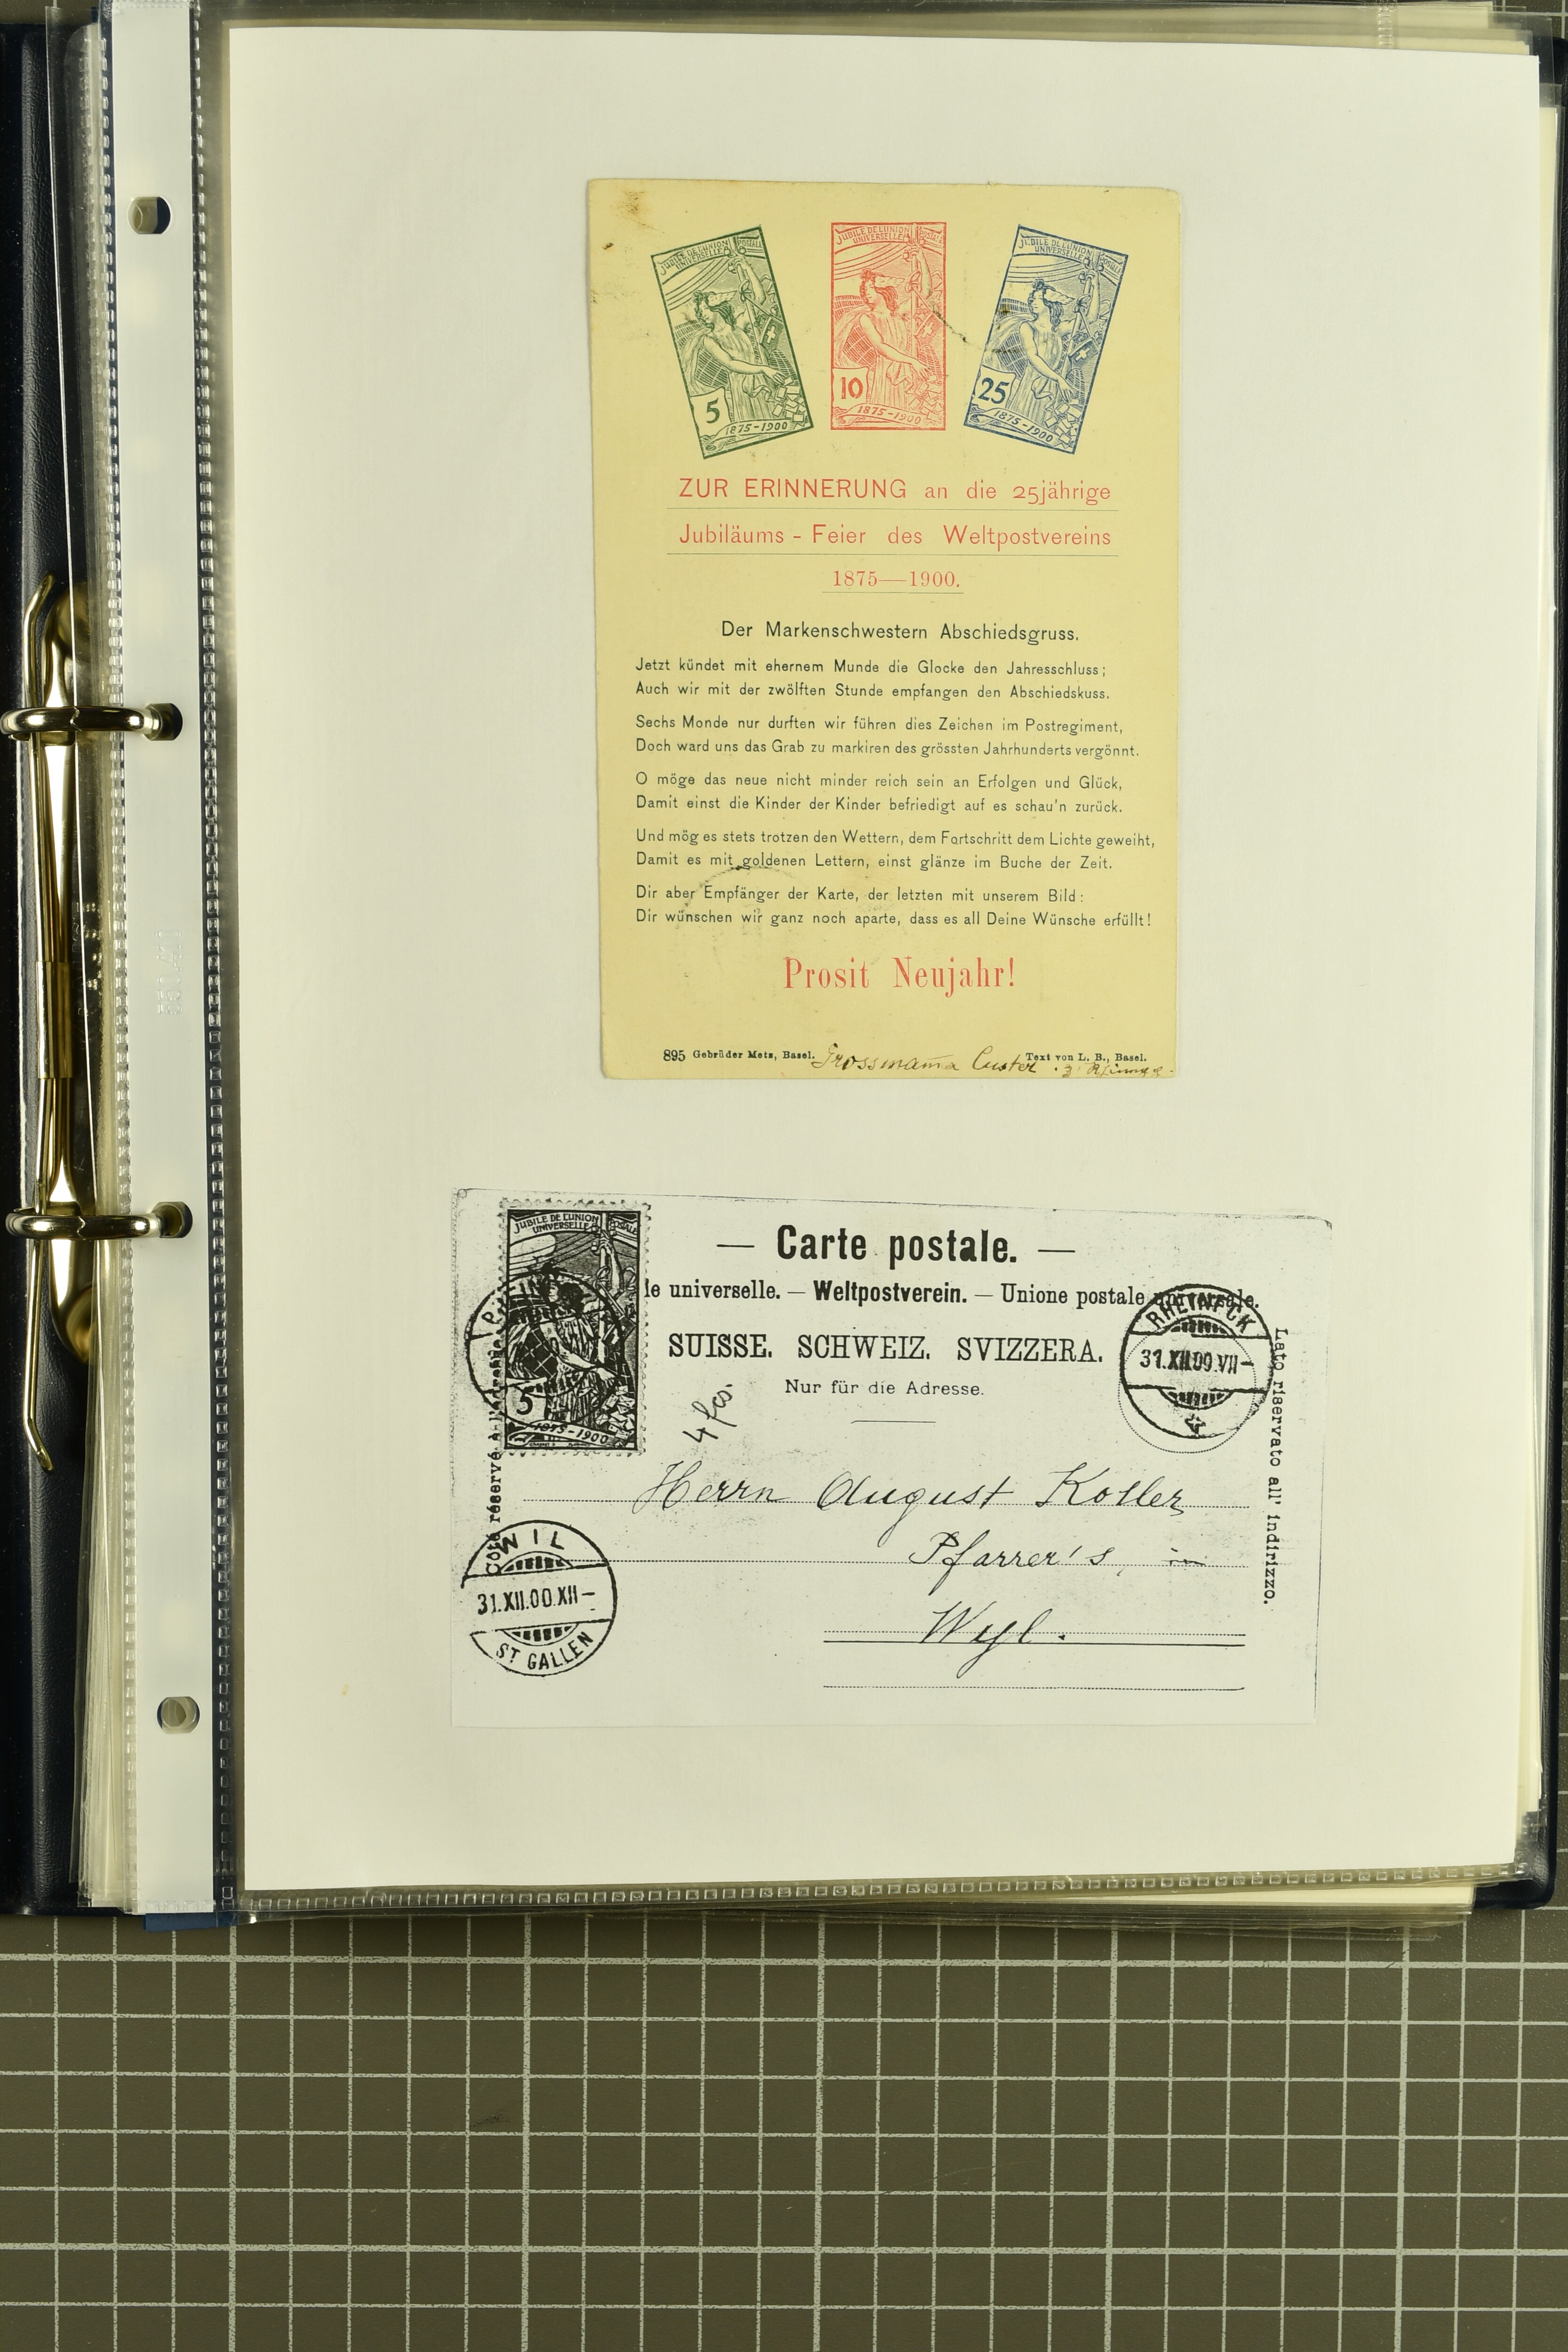 JUBILÉ DE L'UNION POSTALE
UNIVERSELLE
5
1875-1900
JUBILÉ DE L'UNION POSTALE
UNIVERSELLE
10
1875-1900
JUBILÉ DE L'UNION POSTALE
UNIVERSELLE
25
1875-1900
ZUR ERINNERUNG an die 25jährige
Jubiläums - Feier des Weltpostvereins
1875—1900.
Der Markenschwestern Abschiedsgruss.
Jetzt kündet mit ehernem Munde die Glocke den Jahresschluss;
Auch wir mit der zwölften Stunde empfangen den Abschiedskuss.
Sechs Monde nur durften wir führen dies Zeichen im Postregiment,
Doch ward uns das Grab zu markiren des grössten Jahrhunderts vergönnt.
O möge das neue nicht minder reich sein an Erfolgen und Glück,
Damit einst die Kinder der Kinder befriedigt auf es schau'n zurück.
Und mög es stets trotzen den Wettern, dem Fortschritt dem Lichte geweiht,
Damit es mit goldenen Lettern, einst glänze im Buche der Zeit.
Dir aber Empfänger der Karte, der letzten mit unserem Bild:
Dir wünschen wir ganz noch aparte, dass es all Deine Wünsche erfüllt!
Prosit Neujahr!
895 Gebrüder Metz, Basel. Grossmama Custer Text von L. B., Basel.
JUBILÉ DE L'UNION POSTALE
UNIVERSELLE
5
1875-1900
— Carte postale. —
le universelle. — Weltpostverein. — Unione postale universale.
SUISSE. SCHWEIZ. SVIZZERA.
Nur für die Adresse.
RHEINECK
31.XII.00.VII-
Côté réservé à l'adresse
Lato riservato all' indirizzo.
Herrn August Koller
Pfarrer's, in
Wyl.
WIL
31.XII.00.XII-
ST GALLEN